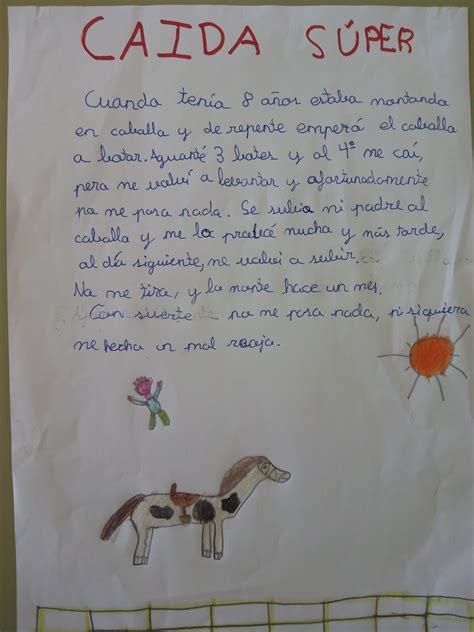 CAIDA SÚPER
Cuando tenía 8 años estaba montando
en caballo y de repente emperó el caballo
a botar. Aguanté 3 botes y al 4º me caí,
pero me volví a levantar y afortunadamente
no me paso nada. Se subio mi padre al
caballo y me lo
mucho y más tarde,
al día siguiente, me volví a subir.
No me tiro, y lo monte hace un mes.
Con suerte no me paso nada, ni siquiera
me hecho un mal